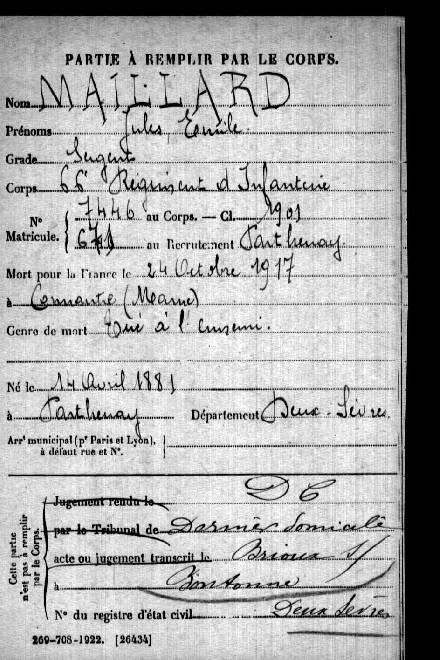 PARTIE À REMPLIR PAR LE CORPS.
Nom MAILLARD
Prénoms Jules, Emile.
Grade Sergent
Corps 66e Régiment d'Infanterie
N° Matricule. 7446 au Corps. — Cl. 1901
671 au Recrutement Parthenay
Mort pour la France le 24 Octobre 1917
à Connantre (Marne)
Genre de mort Tué à l'ennemi.
Né le 14 Avril 1881
à Parthenay Département Deux-Sèvres.
Arrt municipal (pr Paris et Lyon), à défaut rue et N°.
Cette partie n'est pas à remplir par le Corps.
D C
Jugement rendu le
par le Tribunal de Dernier domicile
acte ou jugement transcrit le Brioux s/
à Boutonne
N° du registre d'état civil Deux Sèvres
269-708-1922. [26434]